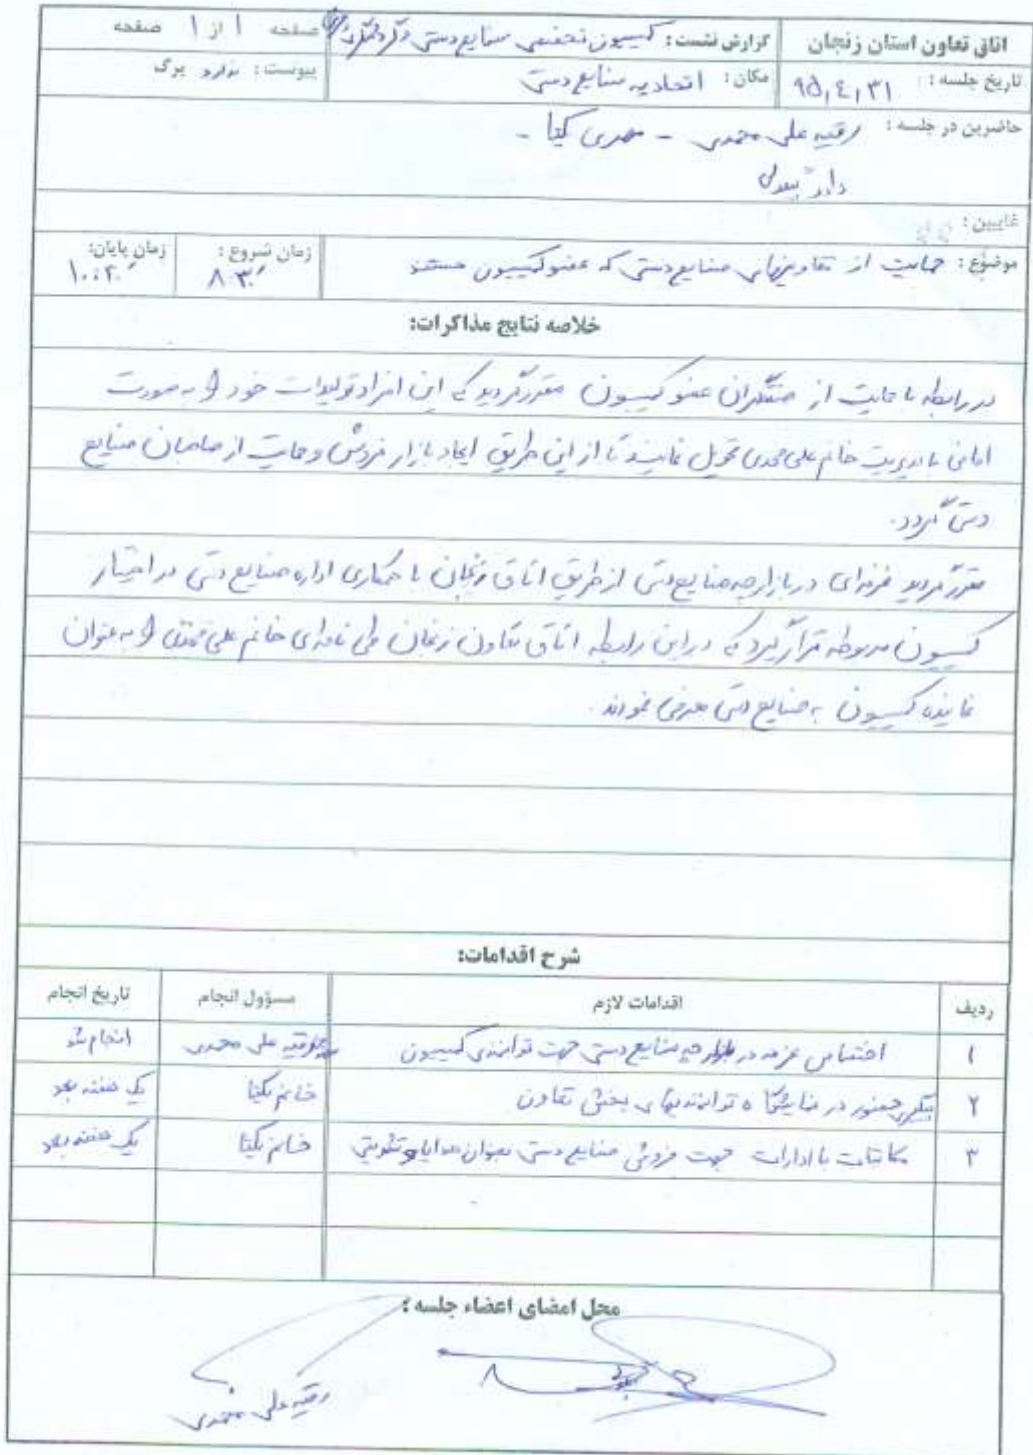 اتاق تعاون استان زنجان
گزارش نشست: کمیسیون تخصصی صنایع دستی و گردشگری
صفحه ۱ از ۱ صفحه
تاریخ جلسه: ۹۵,۴,۳۱
مکان: اتحادیه صنایع دستی
پیوست: ندارد برگ
حاضرین در جلسه: رقیه علی محمدی - مهدی یکتا -
غایبین:
موضوع: حمایت از تعاونیهای صنایع دستی که عضو کمیسیون هستند
زمان شروع: ۸:۳۰
زمان پایان: ۱۰:۲۰
خلاصه نتایج مذاکرات:
در رابطه با حمایت از صنعتگران عضو کمیسیون مقرر گردید که این افراد تولیدات خود را به صورت
امانی با مدیریت خانم علی محمدی تحویل نمایند تا از این طریق ایجاد بازار فروش و حمایت از صاحبان صنایع
دستی گردد.
مقرر گردید غرفه‌ای در بازارچه صنایع دستی از طریق اتاق زنجان با همکاری اداره صنایع دستی در اختیار
کمیسیون مربوطه قرار گیرد که در این رابطه اتاق تعاون زنجان طی نامه‌ای خانم علی محمدی را به عنوان
نماینده کمیسیون به صنایع دستی معرفی نمودند.
شرح اقدامات:
ردیف اقدامات لازم مسؤول انجام تاریخ انجام
۱ اختصاص غرفه در بازارچه صنایع دستی جهت توانمندی کمیسیون رقیه علی محمدی انجام شد
۲ پیگیری حضور در نمایشگاه توانمندیهای بخش تعاون خانم یکتا یک هفته بعد
۳ مکاتبات با ادارات جهت فروش صنایع دستی بعنوان هدایا و تشویقی خانم یکتا یک هفته بعد
محل امضای اعضاء جلسه:
رقیه علی محمدی